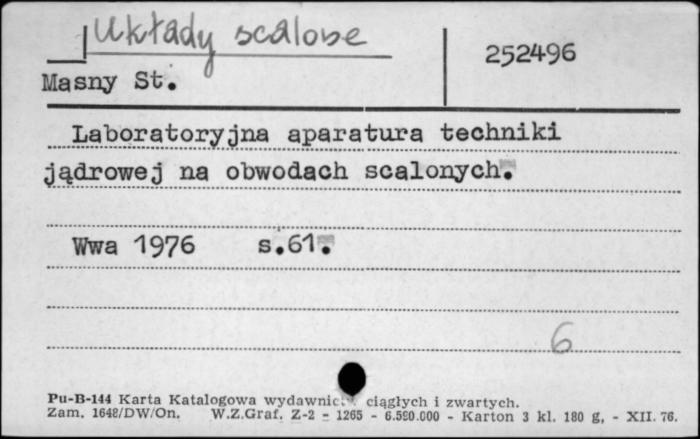 Układy scalone
252496
Masny St.
Laboratoryjna aparatura techniki
jądrowej na obwodach scalonych.
Wwa 1976 s.61.
6
Pu-B-144 Karta Katalogowa wydawnictw ciągłych i zwartych.
Zam. 1648/DW/On. W.Z.Graf. Z-2 - 1265 - 6.590.000 - Karton 3 kl. 180 g, - XII. 76.